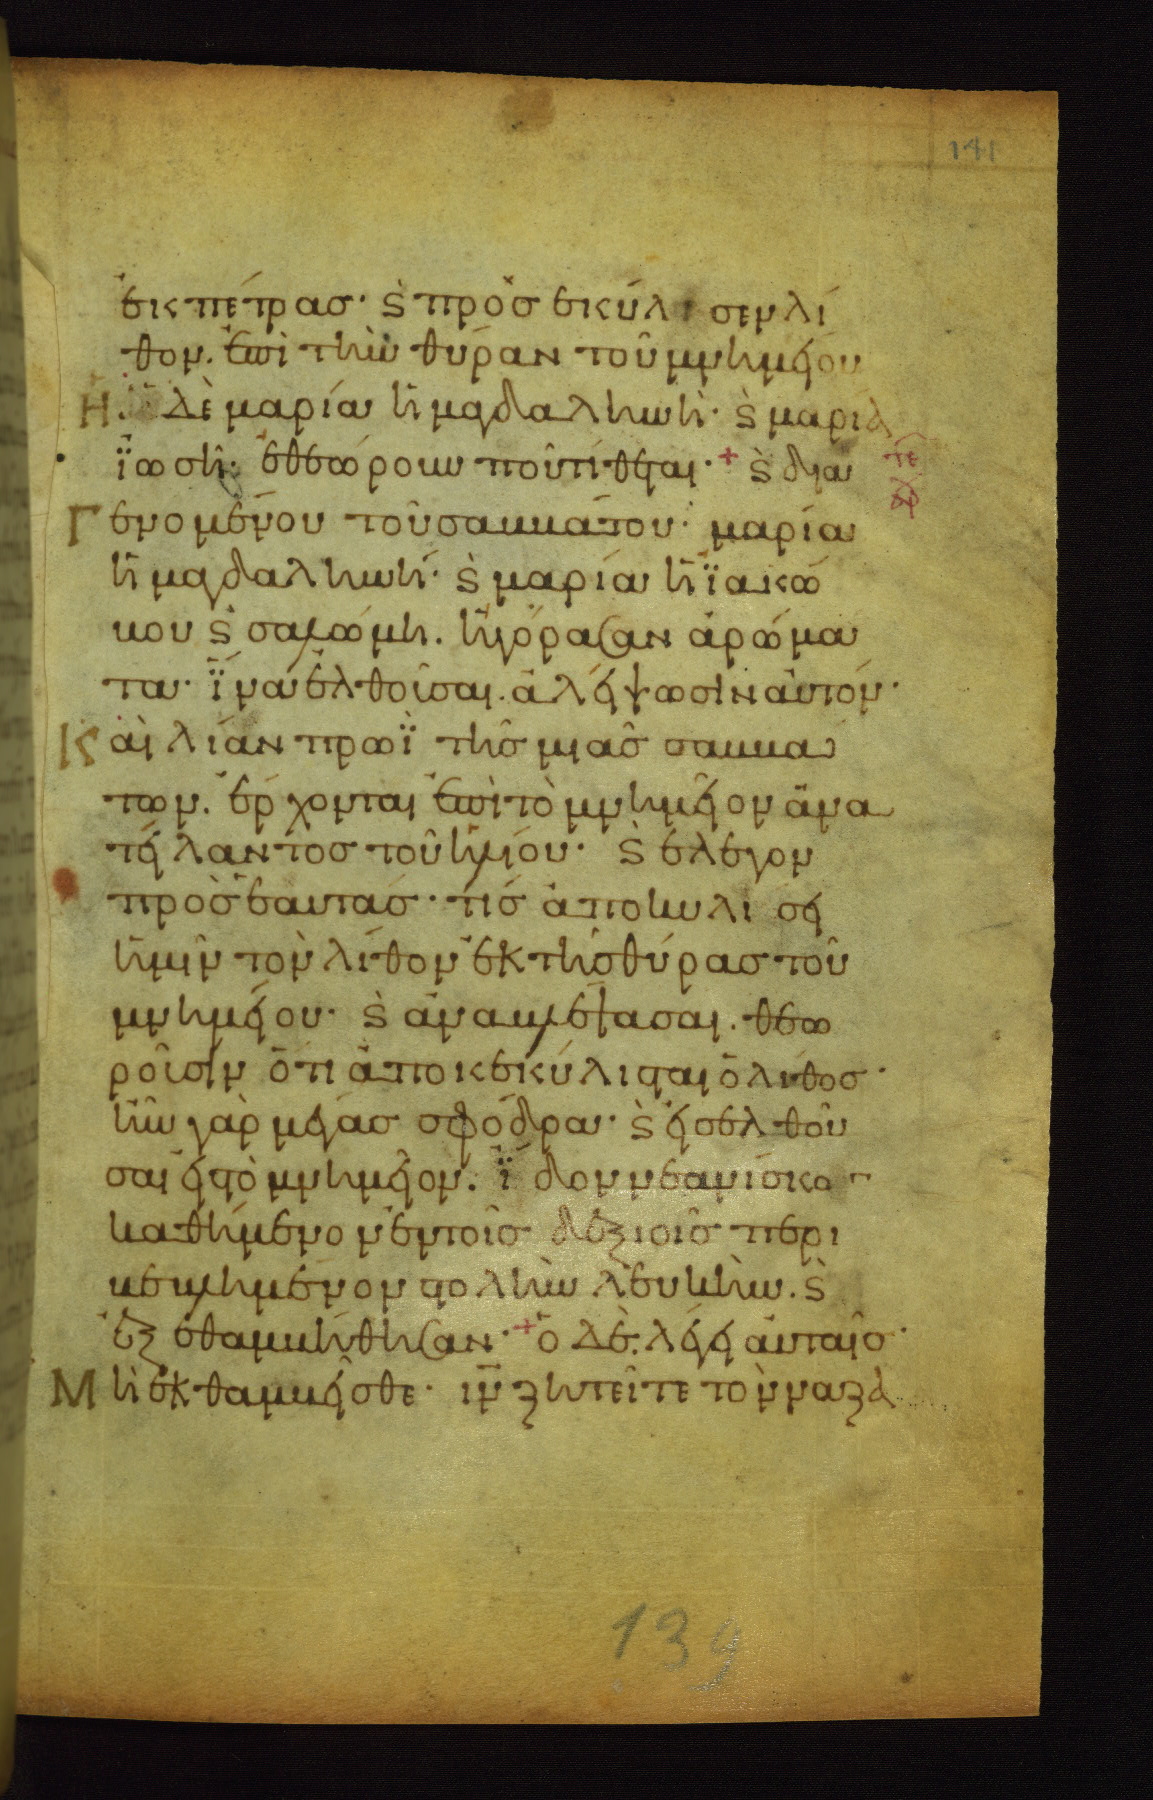 141
ἐκ πέτρας· ϗ προσεκύλισεν λί
θον. ἐπὶ τὴν θύραν τοῦ μνημείου
Ἡ. δὲ μαρία ἡ μαγδαληνὴ· ϗ μαρία
ἰωσῆ· ἐθεώρουν ποῦ τίθεται· + ϗ δια
τε
Γ ενομένου τοῦ σαββάτου· μαρία
ἡ μαγδαληνή· ϗ μαρία ἡ ϊακώ
βου ϗ σαλώμη. ἠγόρασαν ἀρώμα
τα· ἵνα ἐλθοῦσαι. ἀλείψωσιν αὐτόν·
Κ αὶ λίαν πρωῒ τῆς μιᾶς σαββα
των. ἔρχονται ἐπὶ τὸ μνημεῖον ἀνα
τείλαντος τοῦ ἡλίου· ϗ ἔλεγον
πρὸς ἑαυτάς· τίς ἀποκυλίσει
ἡμῖν τὸν λίθον ἐκ τῆς θύρας τοῦ
μνημείου· ϗ ἀναβλέψασαι. θεω
ροῦσιν ὅτι ἀποκεκύλισται ὁ λίθος·
ἦν γὰρ μέγας σφόδρα· ϗ εἰσελθοῦ
σαι εἰς τὸ μνημεῖον. ἴδον νεανίσκον
καθήμενον ἐν τοῖς δεξιοῖς περι
βεβλημένον στολὴν λευκὴν. ϗ
ἐξεθαμβήθησαν· + ὁ δὲ. λέγει αὐταῖς·
Μ ὴ ἐκθαμβεῖσθε· ιν̅ ζητεῖτε τὸν ναζα
139